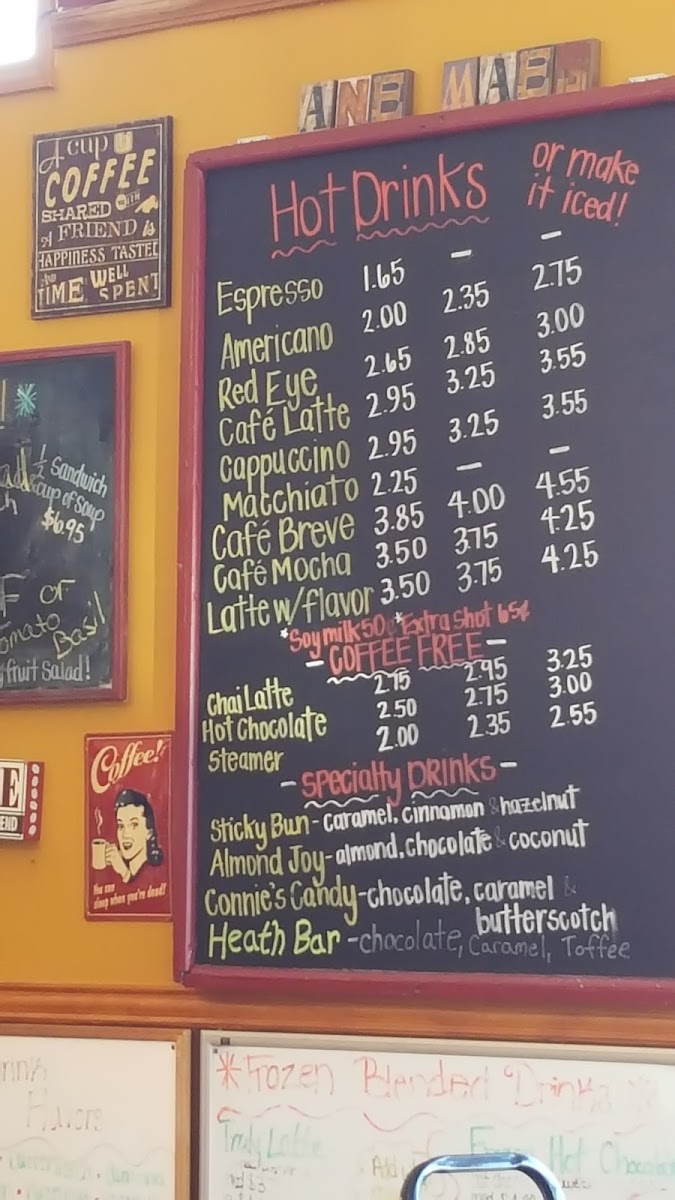 ANE MAE'S
A CUP OF
COFFEE
SHARED WITH
A FRIEND is
HAPPINESS TASTED
AND WELL
TIME SPENT
Hot Drinks or make
it iced!
Espresso 1.65 – –
Americano 2.00 2.35 2.75
Red Eye 2.65 2.85 3.00
Café Latte 2.95 3.25 3.55
Cappuccino 2.95 3.25 3.55
Macchiato 2.25 – –
Café Breve 3.85 4.00 4.55
Café Mocha 3.50 3.75 4.25
Latte w/flavor 3.50 3.75 4.25
*Soy milk 50¢ *Extra Shot 65¢
– COFFEE FREE –
Chai Latte 2.75 2.95 3.25
Hot Chocolate 2.50 2.75 3.00
Steamer 2.00 2.35 2.55
– Specialty DRINKS –
Sticky Bun - caramel, cinnamon & hazelnut
Almond Joy - almond, chocolate & coconut
Connie's Candy - chocolate, caramel &
butterscotch
Heath Bar - chocolate, Caramel, Toffee
1/2 Sandwich
cup of soup
$6.95
or
Basil
fruit Salad!
Coffee!
You can
sleep when you're dead!
Flavors
*Frozen Blended Drinks*
Truly Latte
Hot Chocolate